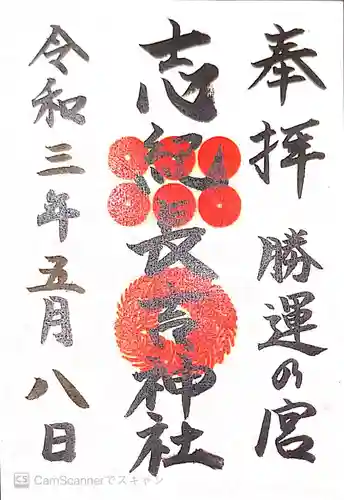 奉拝 勝運の宮
志紀長吉神社
令和三年五月八日
CS CamScannerでスキャン